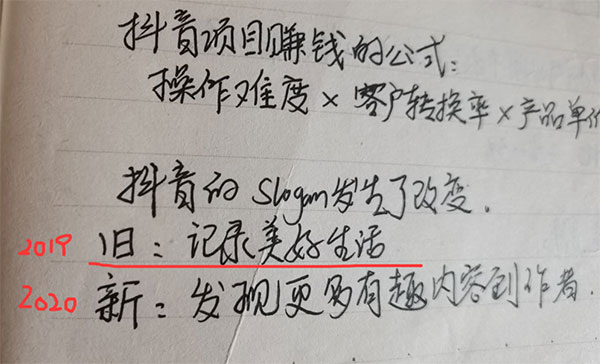 抖音项目赚钱的公式:
操作难度 × 客户转换率 × 产品单价
抖音的 Slogan发生了改变.
2019 旧: 记录美好生活
2020 新: 发现更多有趣内容到作者.